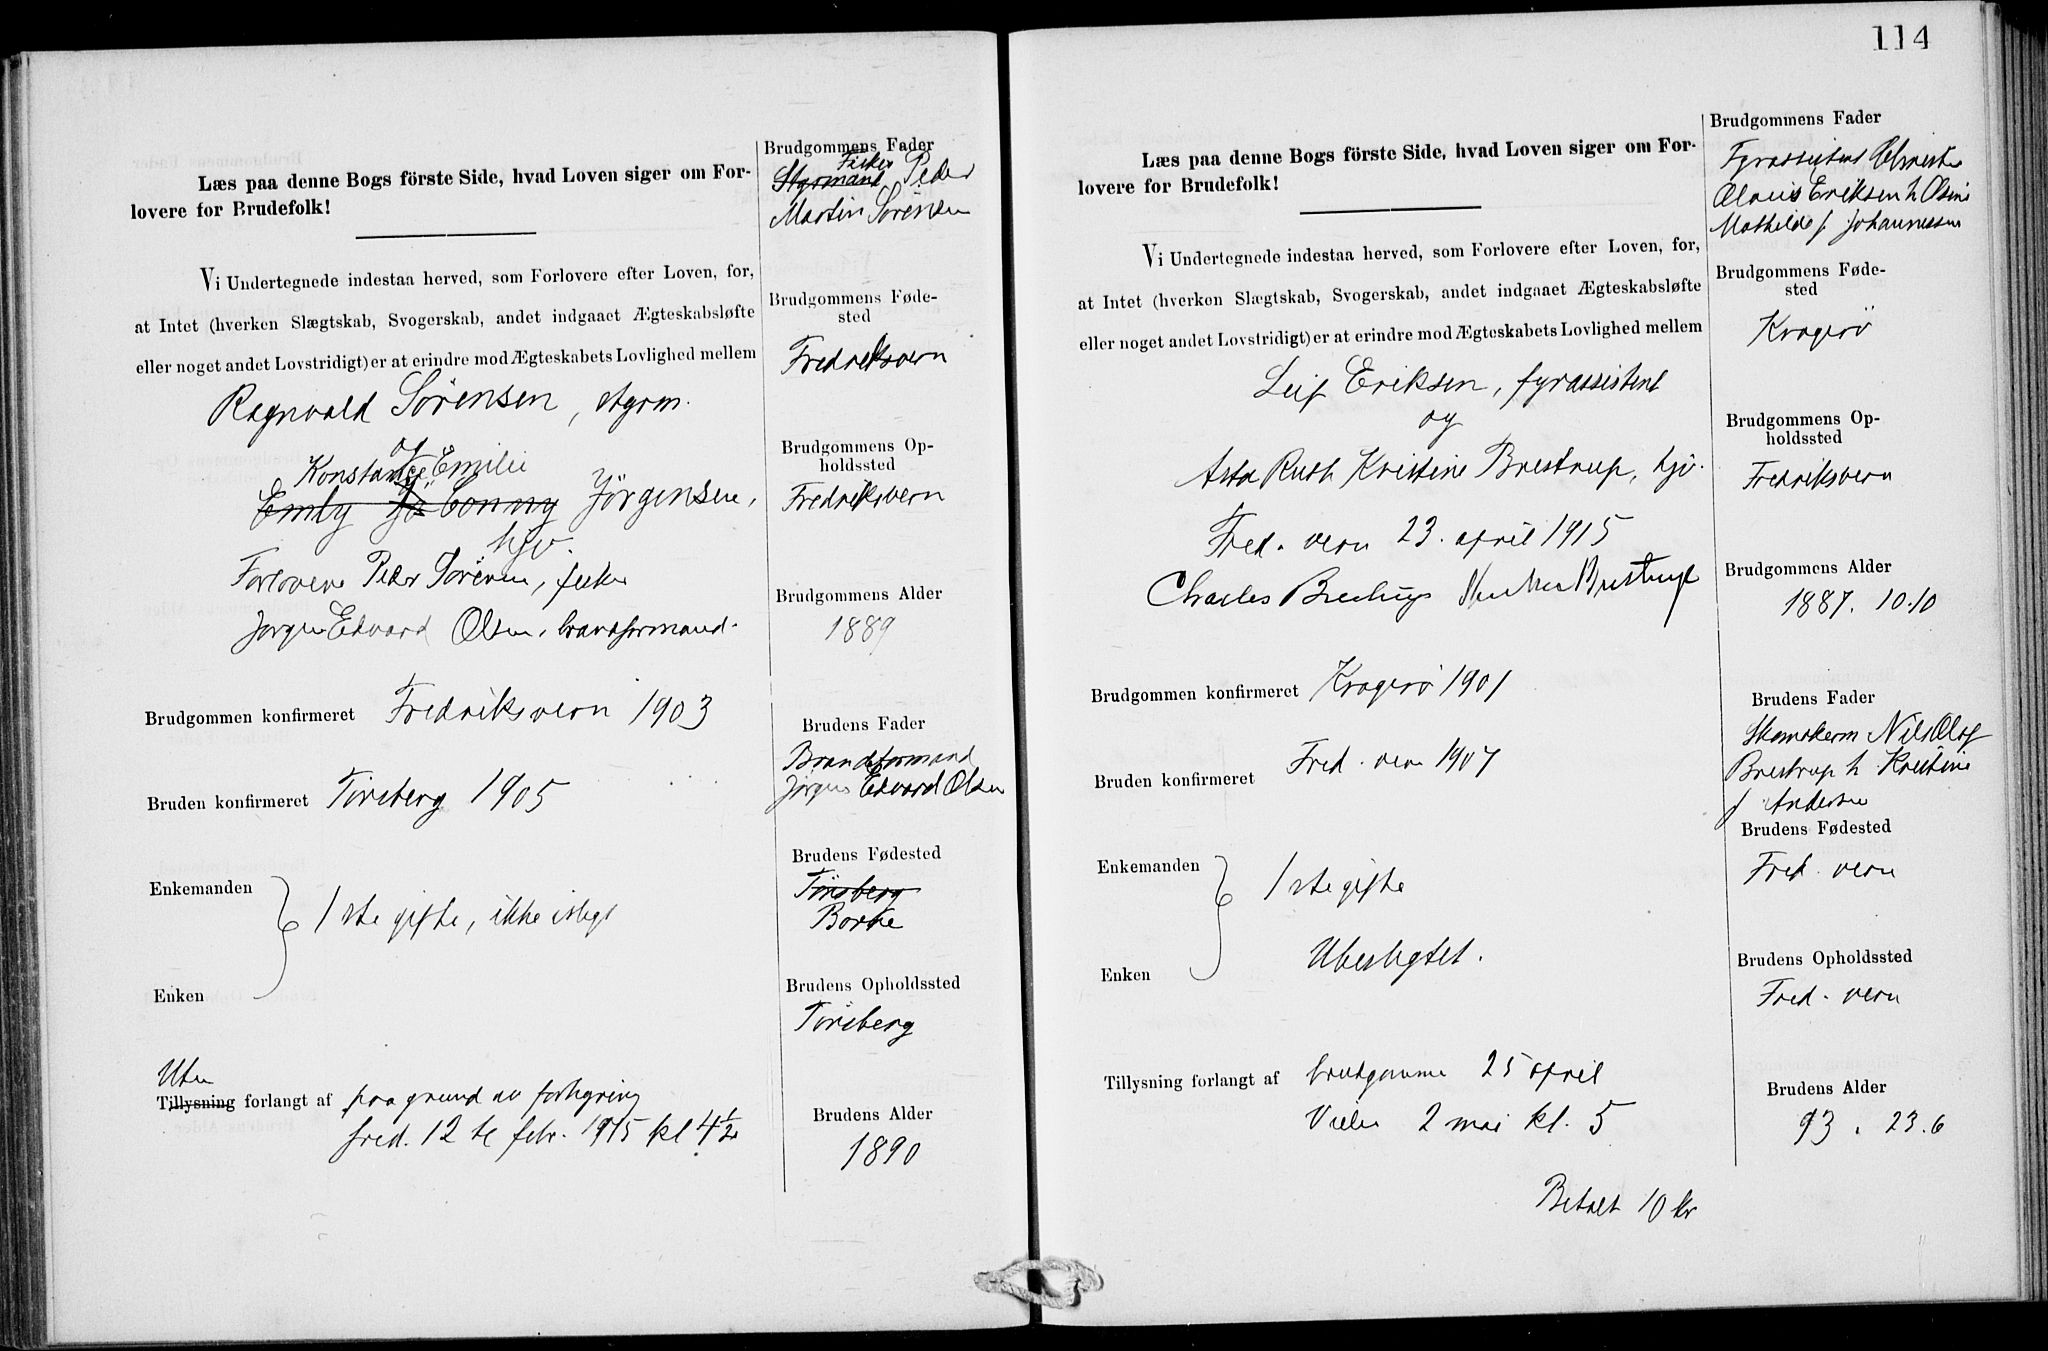 Læs paa denne Bogs förste Side, hvad Loven siger om For-
lovere for Brudefolk!
Vi Undertegnede indestaa herved, som Forlovere efter Loven, for,
at Intet (hverken Slægtskab, Svogerskab, andet indgaaet Ægteskabsløfte
eller noget andet Lovstridigt) er at erindre mod Ægteskabets Lovlighed mellem
Ragnvald Sørensen, styrm.
og
Konstance Emilie
Emly Conny Jörgensen,
hjv.
Forlovere Peder Sörensen, fisker
Jørgen Edvard Olsen, brandformand.
Brudgommen konfirmeret Fredriksvern 1903
Bruden konfirmeret Tönsberg 1905
Enkemanden
1ste gifte, ikke
Enken
Uten
Tillysning forlangt af paa grund av
fred. 12 te febr. 1915 kl 4½
Brudgommens Fader
Fisker
Styrmand Peder
Martin Sörensen
Brudgommens Føde-
sted
Fredriksvern
Brudgommens Op-
holdssted
Fredriksvern
Brudgommens Alder
1889
Brudens Fader
Brandformand
Jørgen Edvard Olsen
Brudens Fødested
Tönsberg
Borre
Brudens Opholdssted
Tönsberg
Brudens Alder
1890
114
Læs paa denne Bogs förste Side, hvad Loven siger om For-
lovere for Brudefolk!
Vi Undertegnede indestaa herved, som Forlovere efter Loven, for,
at Intet (hverken Slægtskab, Svogerskab, andet indgaaet Ægteskabsløfte
eller noget andet Lovstridigt) er at erindre mod Ægteskabets Lovlighed mellem
Leif Eriksen, fyrassistent
og
Asta Ruth Kristine Brestrup, hjv.
Fred. vern 23. april 1915
Charles Brestrup Brestrup
Brudgommen konfirmeret Kragerö 1901
Bruden konfirmeret Fred. vern 1907
Enkemanden
1ste gifte
Ubeslegtet.
Enken
Tillysning forlangt af brudgommen 25 april
Vielse 2 mai kl. 5
Betalt 10 kr
Brudgommens Fader
Fyrassistent
Olaus Eriksen h Olsine
Mathilde f. Johannessen
Brudgommens Føde-
sted
Kragerö
Brudgommens Op-
holdssted
Fredriksvern
Brudgommens Alder
1887. 10.10
Brudens Fader
Nils Olof
Brestrup h Kristine
f Andersen
Brudens Fødested
Fred. vern
Brudens Opholdssted
Fred. vern
Brudens Alder
93. 23.6